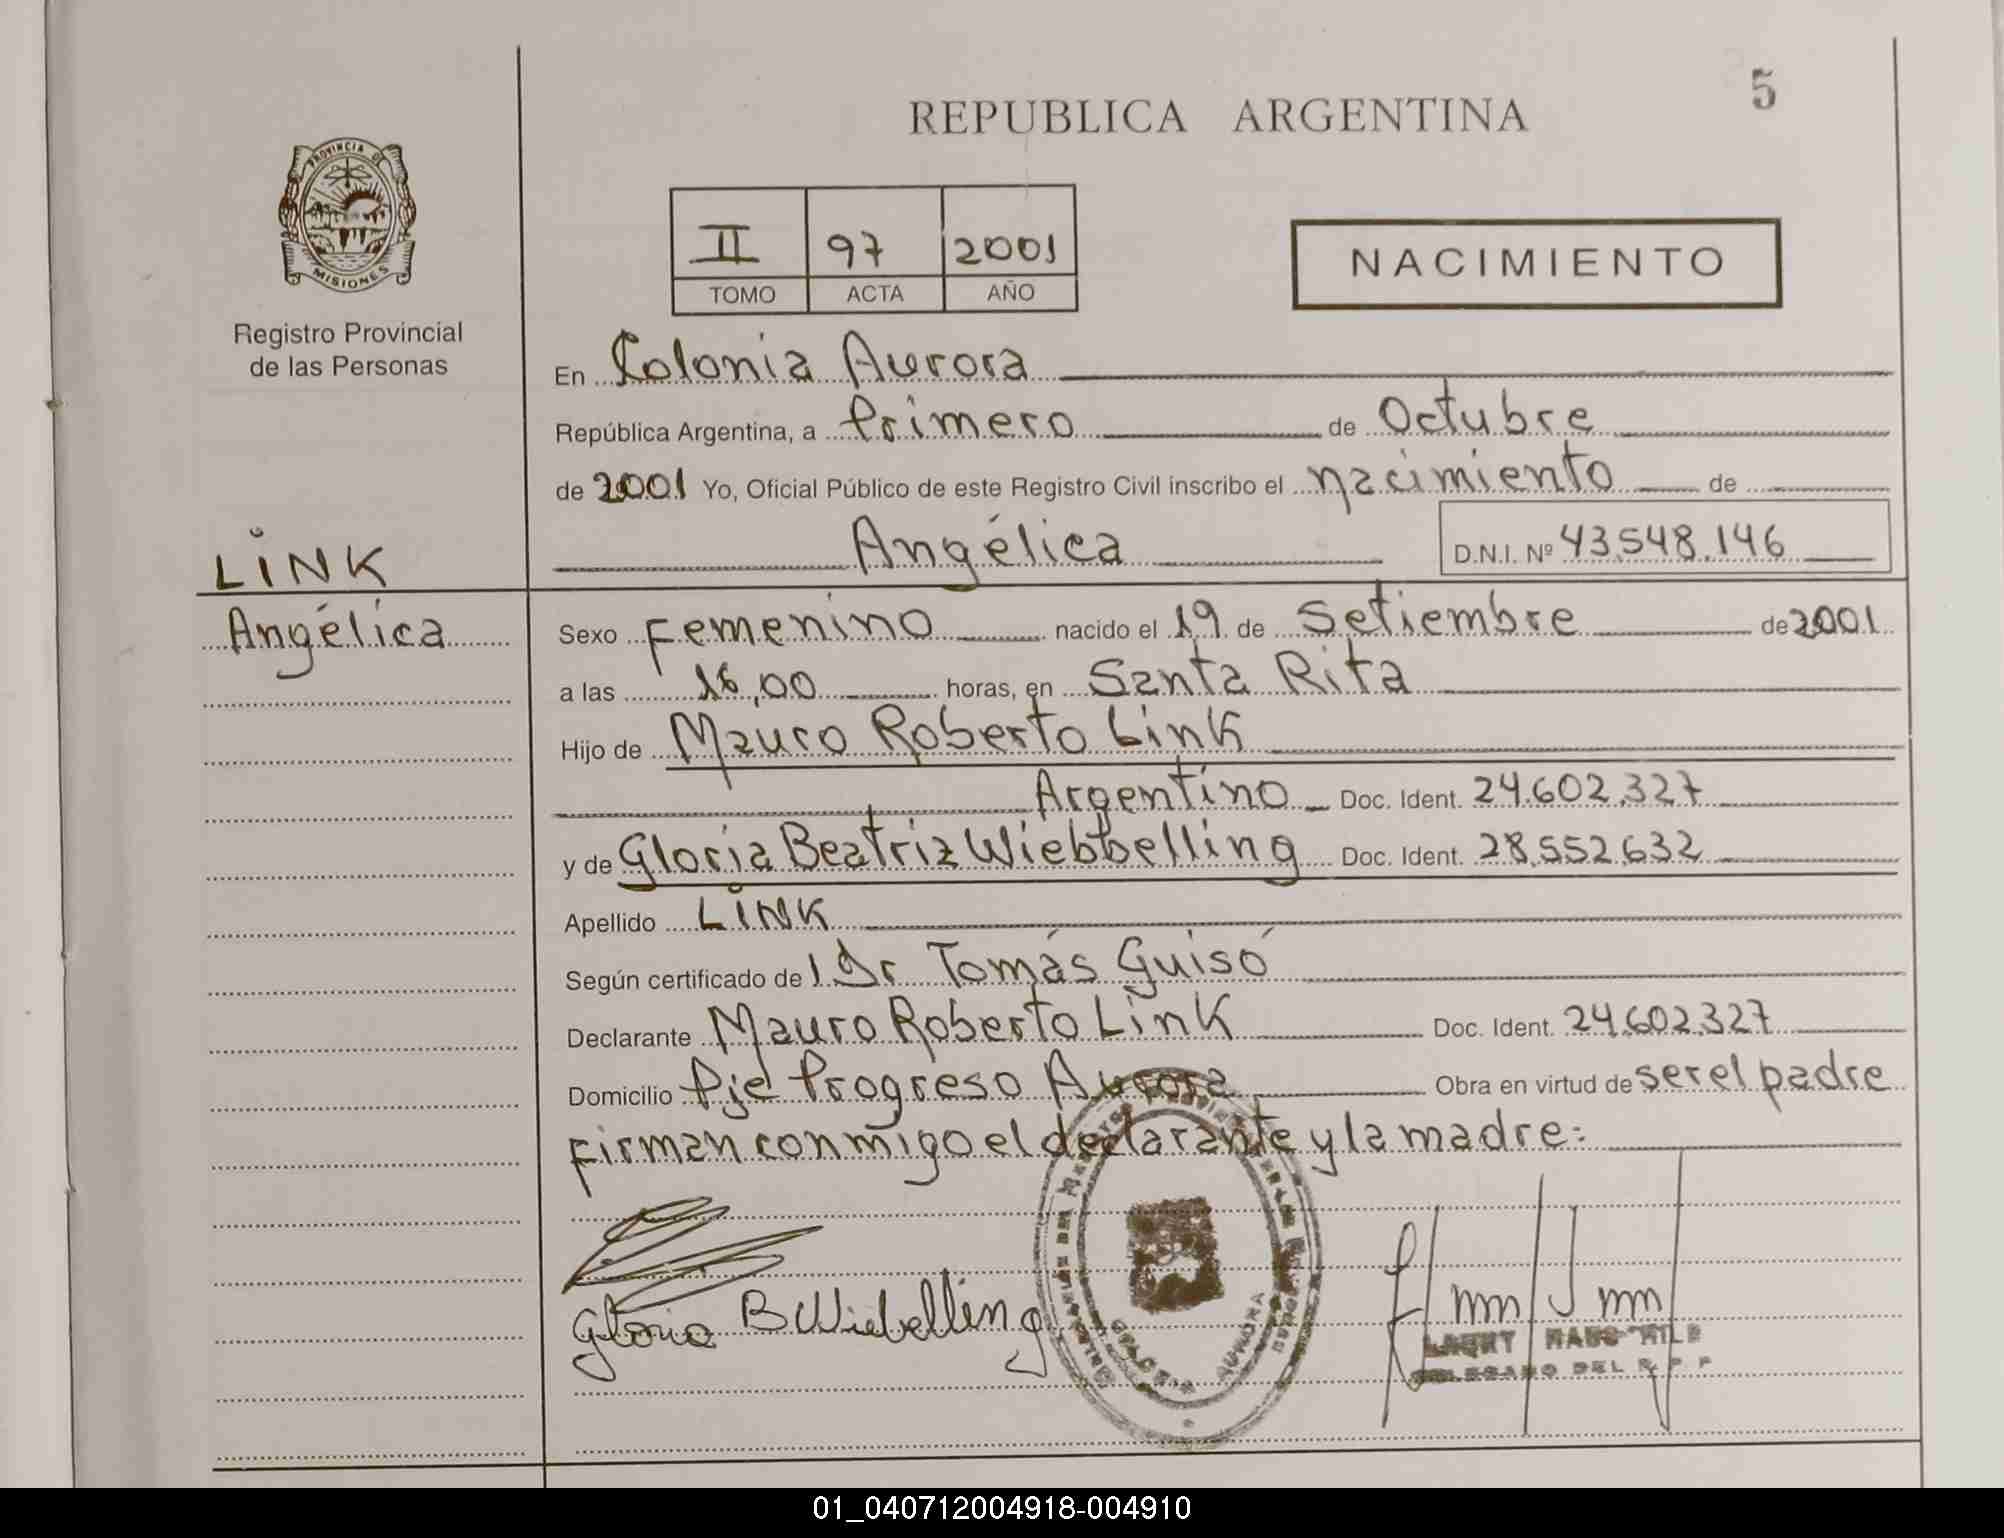 5
REPUBLICA ARGENTINA
PROVINCIA DE
MISIONES
Registro Provincial
de las Personas
II 97 2001
TOMO ACTA AÑO
NACIMIENTO
En Colonia Aurora
República Argentina, a Primero de Octubre
de 2001 Yo, Oficial Público de este Registro Civil inscribo el nacimiento de
Angélica D.N.I. Nº 43.548.146
LINK
Angélica
Sexo Femenino nacido el 19 de Setiembre de 2001
a las 16,00 horas, en Santa Rita
Hijo de Mauro Roberto Link
Argentino Doc. Ident. 24.602.327
y de Gloria Beatriz Wiebbelling Doc. Ident. 28.552.632
Apellido LINK
Según certificado de Dr Tomás Guisó
Declarante Mauro Roberto Link Doc. Ident. 24.602.327
Domicilio Pje Progreso Aurora Obra en virtud de ser el padre
Firman conmigo el declarante y la madre:
Gloria B Wiebelling
AURORA
DEL R. P. P
01_040712004918-004910